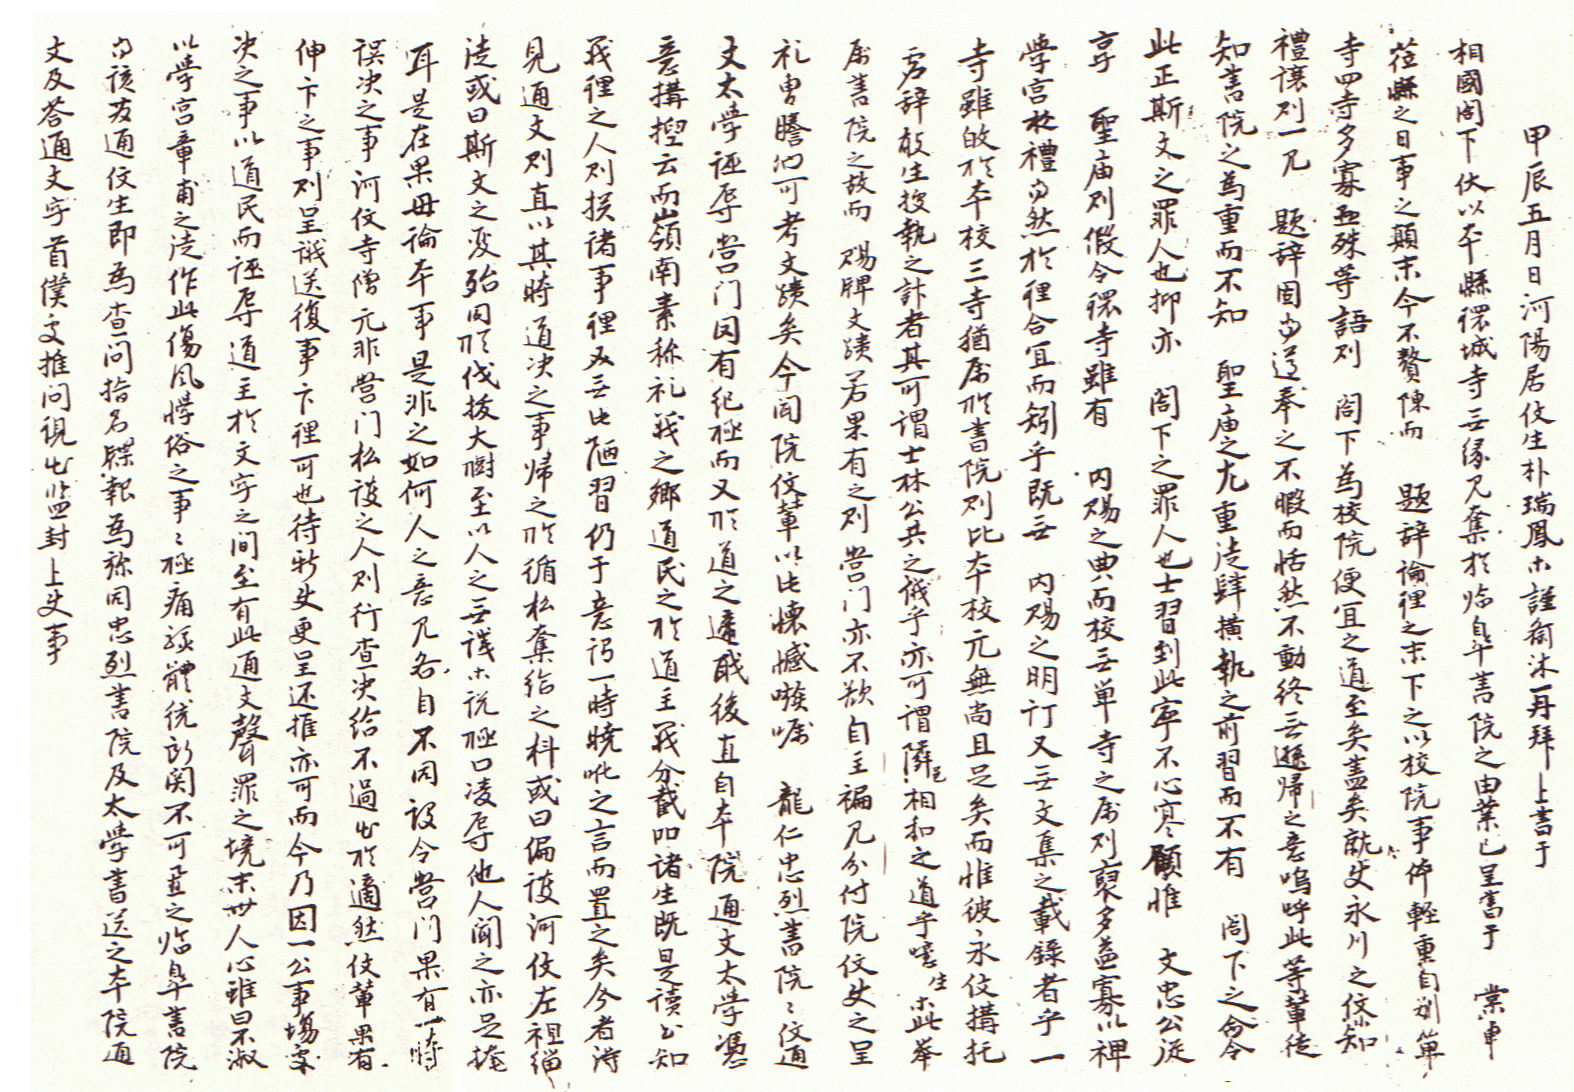 甲辰五月日河陽居仗生朴瑞鳳木謹齋沐再拜上書于
相國閤下伏以本縣環城寺無緣見奪於臨皐書院之由業已呈書于 棠軒
莅縣之日事之顚末今不贅陳而 題辭論理之末下之以校院事体輕重自別第
寺四寺多寡懸殊等語則 閤下爲校院便宜之道至矣盡矣就文永川之仗知
禮讓則一見 題辭固當遵奉之不暇而恬然不動終無遜歸之意嗚呼此等輩徒
知書院之爲重而不知 聖庙之尤重徒肆橫執之前習而不有 閤下之命令
此正斯文之罪人也抑亦 閤下之罪人也士習到此寧不心寒顧惟 文忠公從
享 聖庙則假令環寺雖有 內賜之典而校無單寺之属則裒多益寡以裨
學宮於禮當然於理合宜而矧乎既無 內賜之明訂又無文集之載錄者乎一
寺雖敀於本校三寺猶属於書院則比本校元無尚且足矣而惟彼永仗搆托
虛辭敀生授執之計者其可謂士林公共之儀乎亦可謂隣邑相和之道乎噫生木此举
属書院之故而 賜牌文蹟若果有之則營门亦不欲自主褊見分付院仗処之呈
礼曺謄旧可考文蹟矣今闻院仗輩以此懷憾嗾囑 龍仁忠烈書院〻仗通
文太學誣辱营门固有紀極而又於道之遠戚後直自本院通文太學憑
意搆揑云而嶺南素称礼義之鄉道民之於道主義分截如諸生既是讀書知
義理之人則揆諸事理必無此陋習仍于意謂一時曉呲之言而置之矣今者得
見通文則直以其時道决之事帰之於循私奪給之科或曰偏護河仗左袒緇
徒或曰斯文之変殆同於伐拔大樹至以人之無識木说極口凌辱他人闻之亦足掩
耳是在果毋論本事是非之如何人之意見各自不同設令营门果有一時
誤决之事河仗寺僧元非营门私護之人則行查决給不過出於適然仗輩果有
伸卞之事則呈訴送復事卞理可也待新使更呈还推亦可而今乃因一公事塲寀
决之事以道民而誣辱道主於文字之间至有此通文聲罪之境末世人心雖曰不淑
以學宮章甫之徒作此傷风悖俗之事〻極痛訝體統所関不可置之臨皐書院
當該发通仗生即爲查问指名牒報爲旀同忠烈書院及太學書送之本院通
文及答通文字首僕処推问現出監封上使事